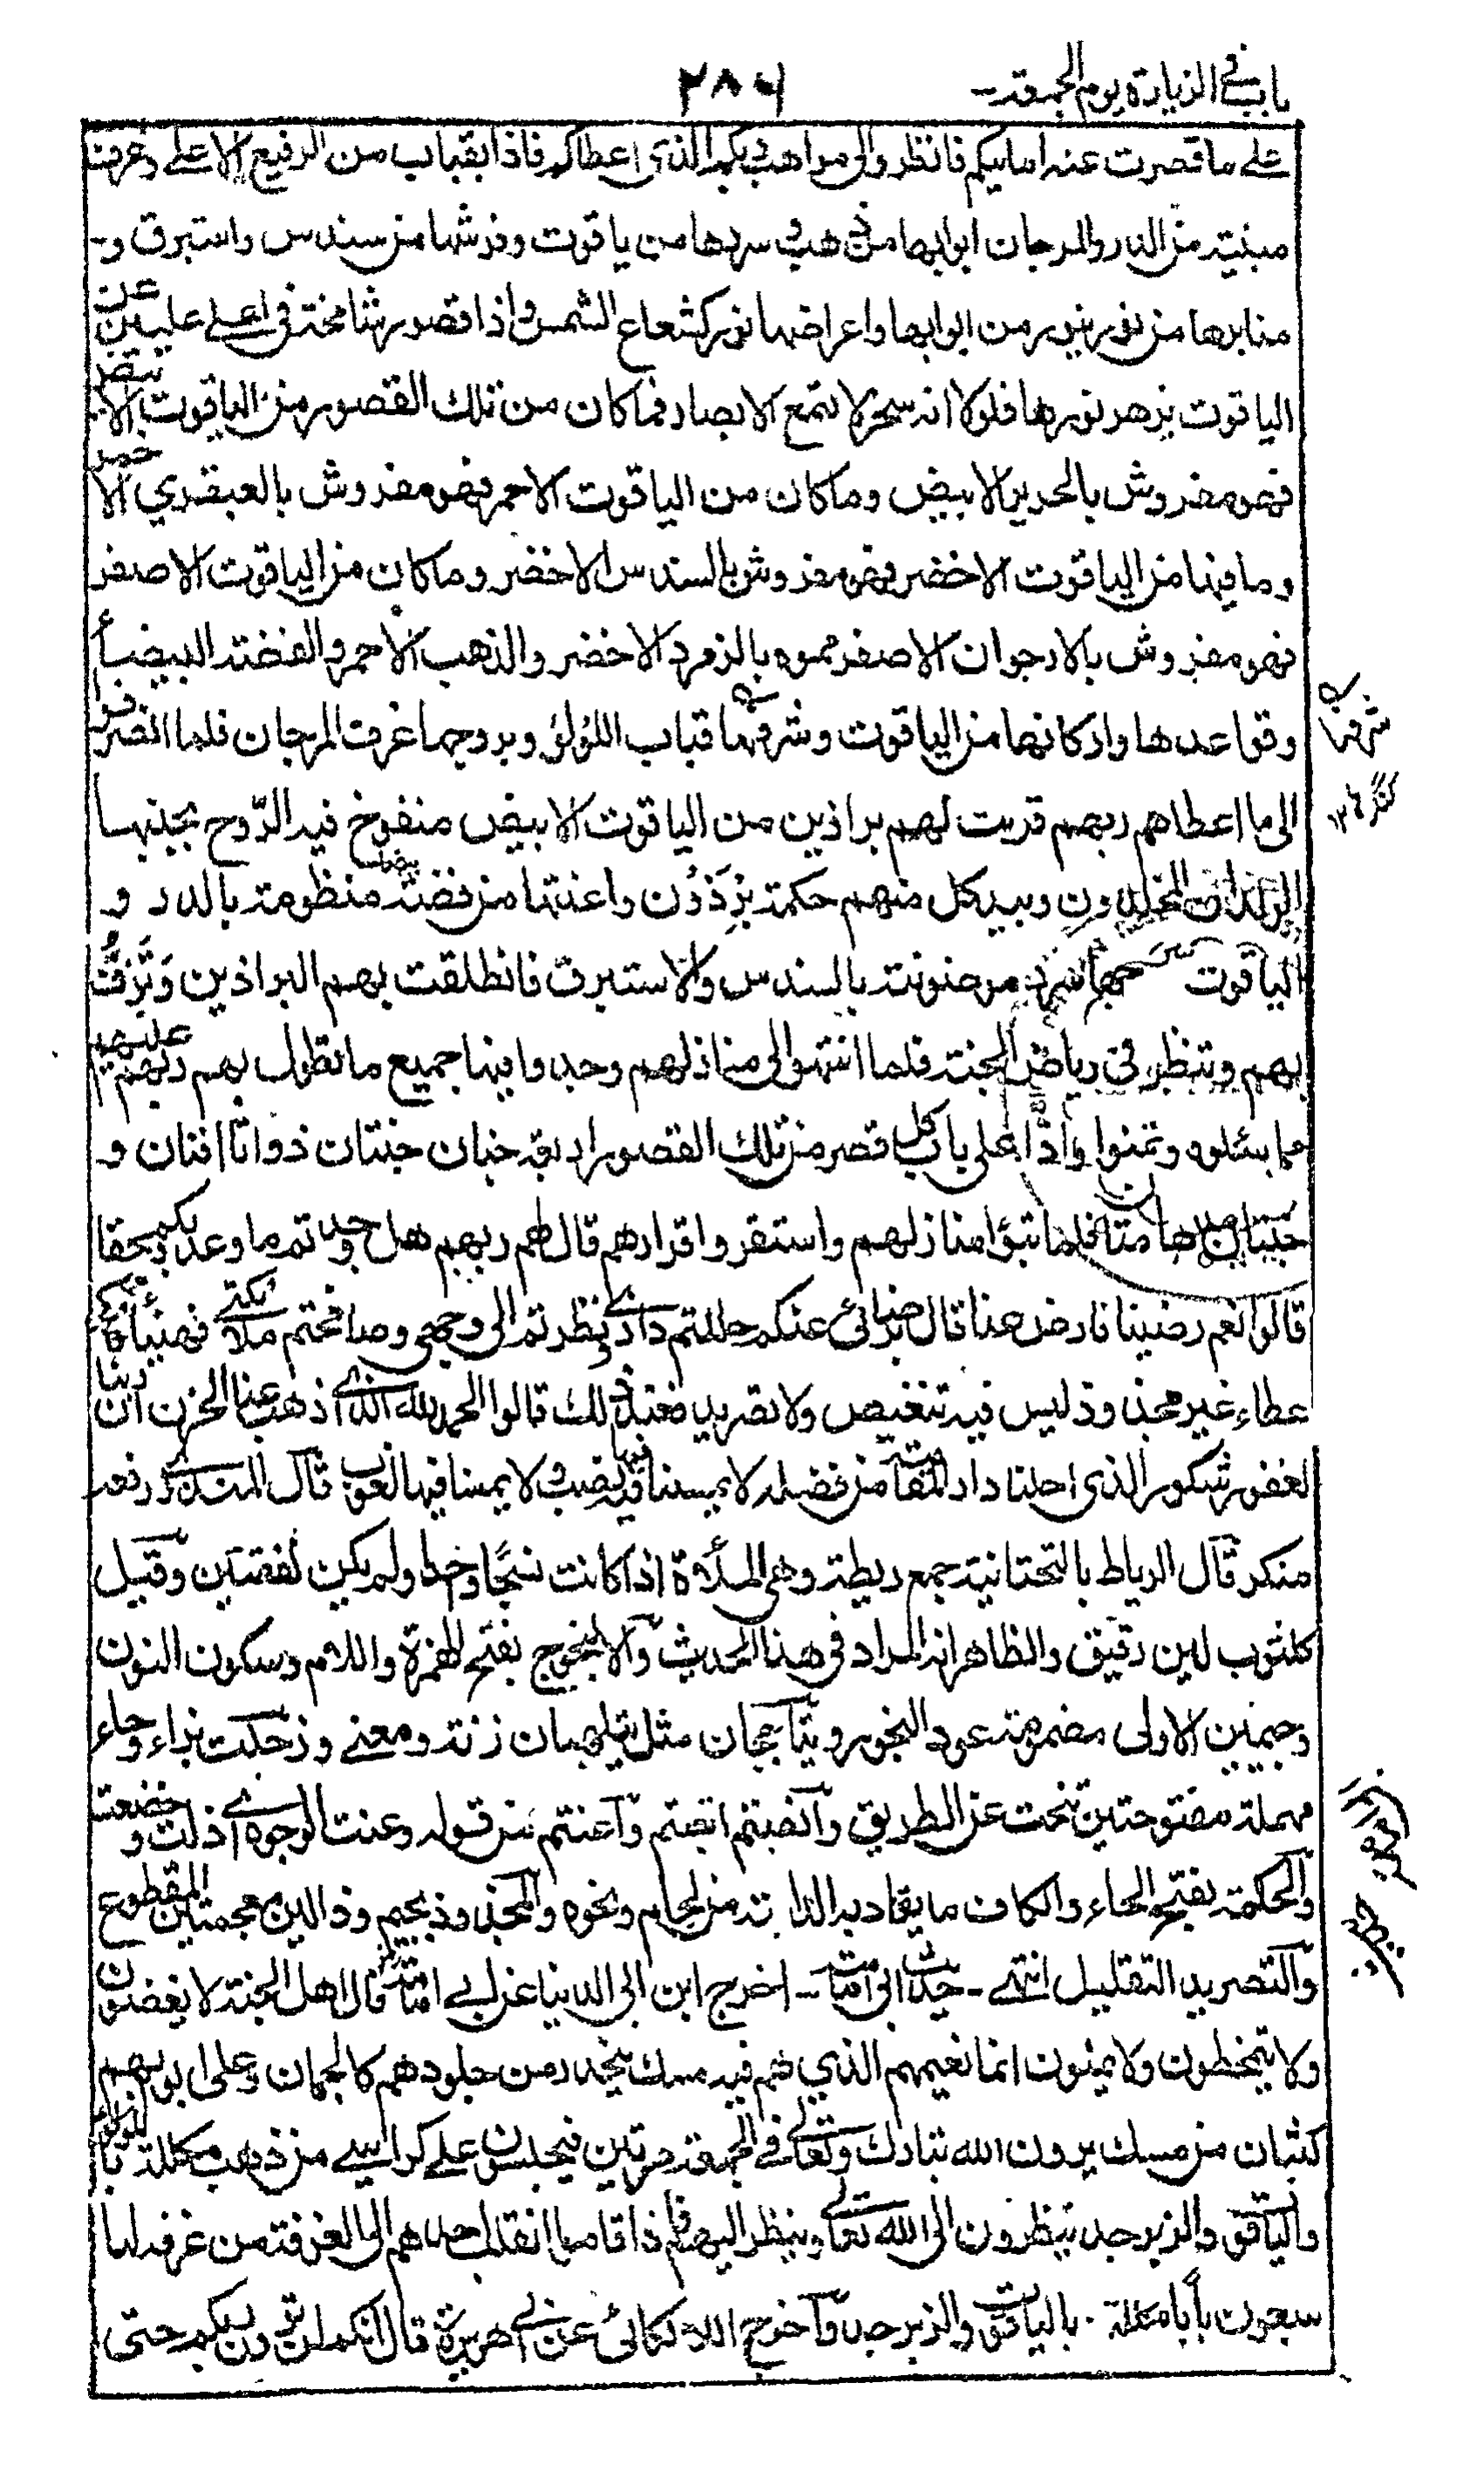 باب في الزيارة يوم الجمعة
٢٨٦
على ما قصرت عنه امانيكم فانظروا الى مواهب ربكم الذي اعطاكم فاذا بقباب من الرفيع الاعلى وغرف
مبنية من الدر والمرجان ابوابها من ذهب سررها من ياقوت وفرشها من سندس واستبرق و
منابرها من نور ينور من ابوابها واعراضها نور كشعاع الشمس واذا قصور شامخة في اعلى عليين من
الياقوت يزهر نورها فلولا انه سخر لا لتمع الابصار فما كان من تلك القصور من الياقوت الابيض
فهو مفروش بالحرير الابيض وما كان من الياقوت الاحمر فهو مفروش بالعبقري الاحمر
وما فيها من الياقوت الاخضر فهو مفروش بالسندس الاخضر وما كان من الياقوت الاصفر
فهو مفروش بالارجوان الاصفر مموه بالزمرد الاخضر والذهب الاحمر والفضة البيضاء
وقواعدها واركانها من الياقوت وشرفها قباب اللؤلؤ وبروجها غرف المرجان فلما انصرفوا
الى ما اعطاهم ربهم قربت لهم براذين من الياقوت الابيض منفوخ فيه الروح بجنبها
الولدان المخلدون وبيد كل منهم حكمة برذون واعنتها من فضة بيضاء منظومة بالدر و
الياقوت سرجها سرر موضونة بالسندس والاستبرق فانطلقت بهم البراذين وتزف
بهم وتنظر في رياض الجنة فلما انتهوا الى منازلهم وجدوا فيها جميع ما تطول بهم ربهم عليهم
مما سئلوه وتمنوا واذا على باب كل قصر من تلك القصور اربعة جنان جنتان ذواتا افنان و
جنتان مدهامتان فلما تبؤا منازلهم واستقروا قرارهم قال لهم ربهم هل وجدتم ما وعد ربكم حقا
قالوا نعم رضينا فارض عنا قال برضائي عنكم حللتم داري ونظرتم الى وجهي وصافحتم ملائكتي فهنيئا
عطاء غير مجذوذ ليس فيه تنغيص ولا تصريد فعند ذلك قالوا الحمد لله الذي اذهب عنا الحزن ان ربنا
لغفور شكور الذي احلنا دار المقامة من فضله لا يمسنا فيها نصب ولا يمسنا فيها لغوب قال المنذري رفعه
منكر قال الرياط بالتحتانية جمع ريطة وهي الملاءة اذا كانت نسجا واحدا ولم يكن لفقتين وقيل
كل ثوب لين رقيق والظاهر انه المراد في هذا الحديث والالنجوج بفتح الهمزة واللام وسكون النون
وجيمين الاولى مضمومة عود البخور ويتأججان مثل يتلهبان زنة ومعنى وزحكت بزاء وحاء
مهملة مفتوحتين تنحت عن الطريق وانصبتم اتعبتم واعنتم من قوله وعنت الوجوه اي ذلت وخضعت
والحكمة بفتح الحاء والكاف ما يقاد به الدابة من لجام ونحوه والمجذوذ بجيم وذالين معجمتين المقطوع
والتصريد التقليل انتهى - حديث ابي امامة - اخرج ابن ابي الدنيا عن ابي امامة قال اهل الجنة لا يغضون
ولا يتمخطون ولا يمنون انما نعيمهم الذي هم فيه مسك يتحدر من جلودهم كالجمان وعلى ابوابهم
كثبان من مسك يرون الله تبارك وتعالى في الجمعة مرتين فيجلسون على كراسي من ذهب مكللة باللؤلؤ
والياقوت والزبرجد ينظرون الى الله تعالى وينظر اليهم فاذا قاموا انقلب احدهم الى الغرفة من غرفه لها
سبعون بابا مكللة بالياقوت والزبرجد واخرج اللالكائي عن ابي هريرة قال انكم لن ترون ربكم حتى